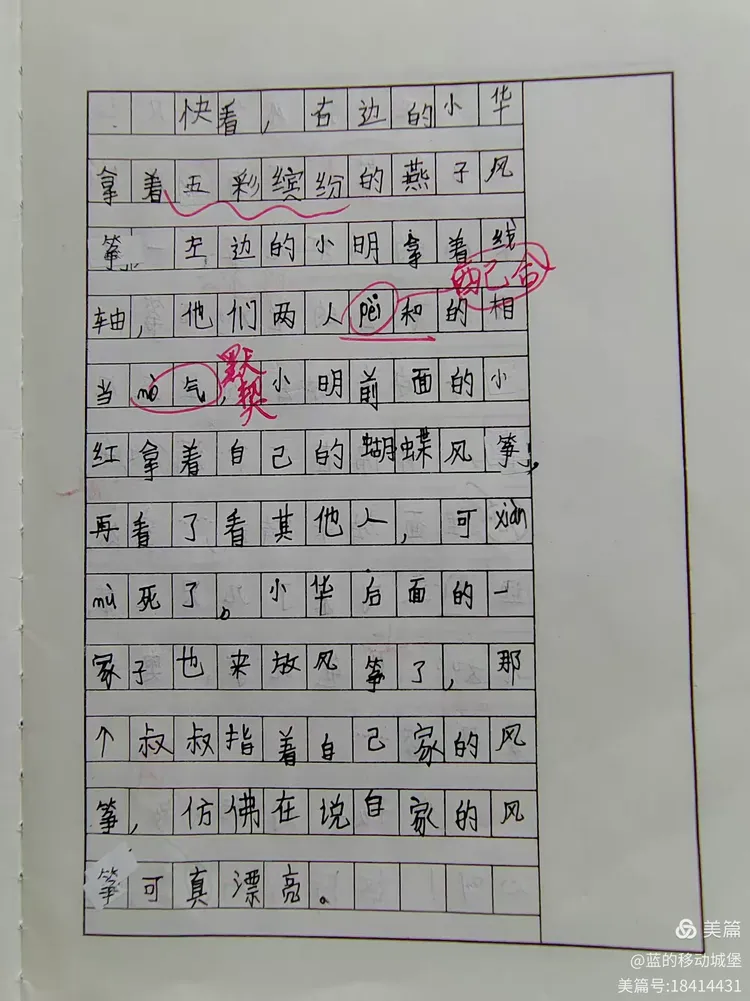 快看，右边的小华
拿着五彩缤纷的燕子风
筝。左边的小明拿着线
配合
轴，他们两人pèi和的相
当mò气，小明前面的小
默契
红拿着自己的蝴蝶风筝，
再看了看其他人，可xiàn
mù死了。小华后面的一
家子也来放风筝了，那
个叔叔指着自己家的风
筝，仿佛在说自家的风
筝可真漂亮。
美篇
@蓝的移动城堡
美篇号:18414431